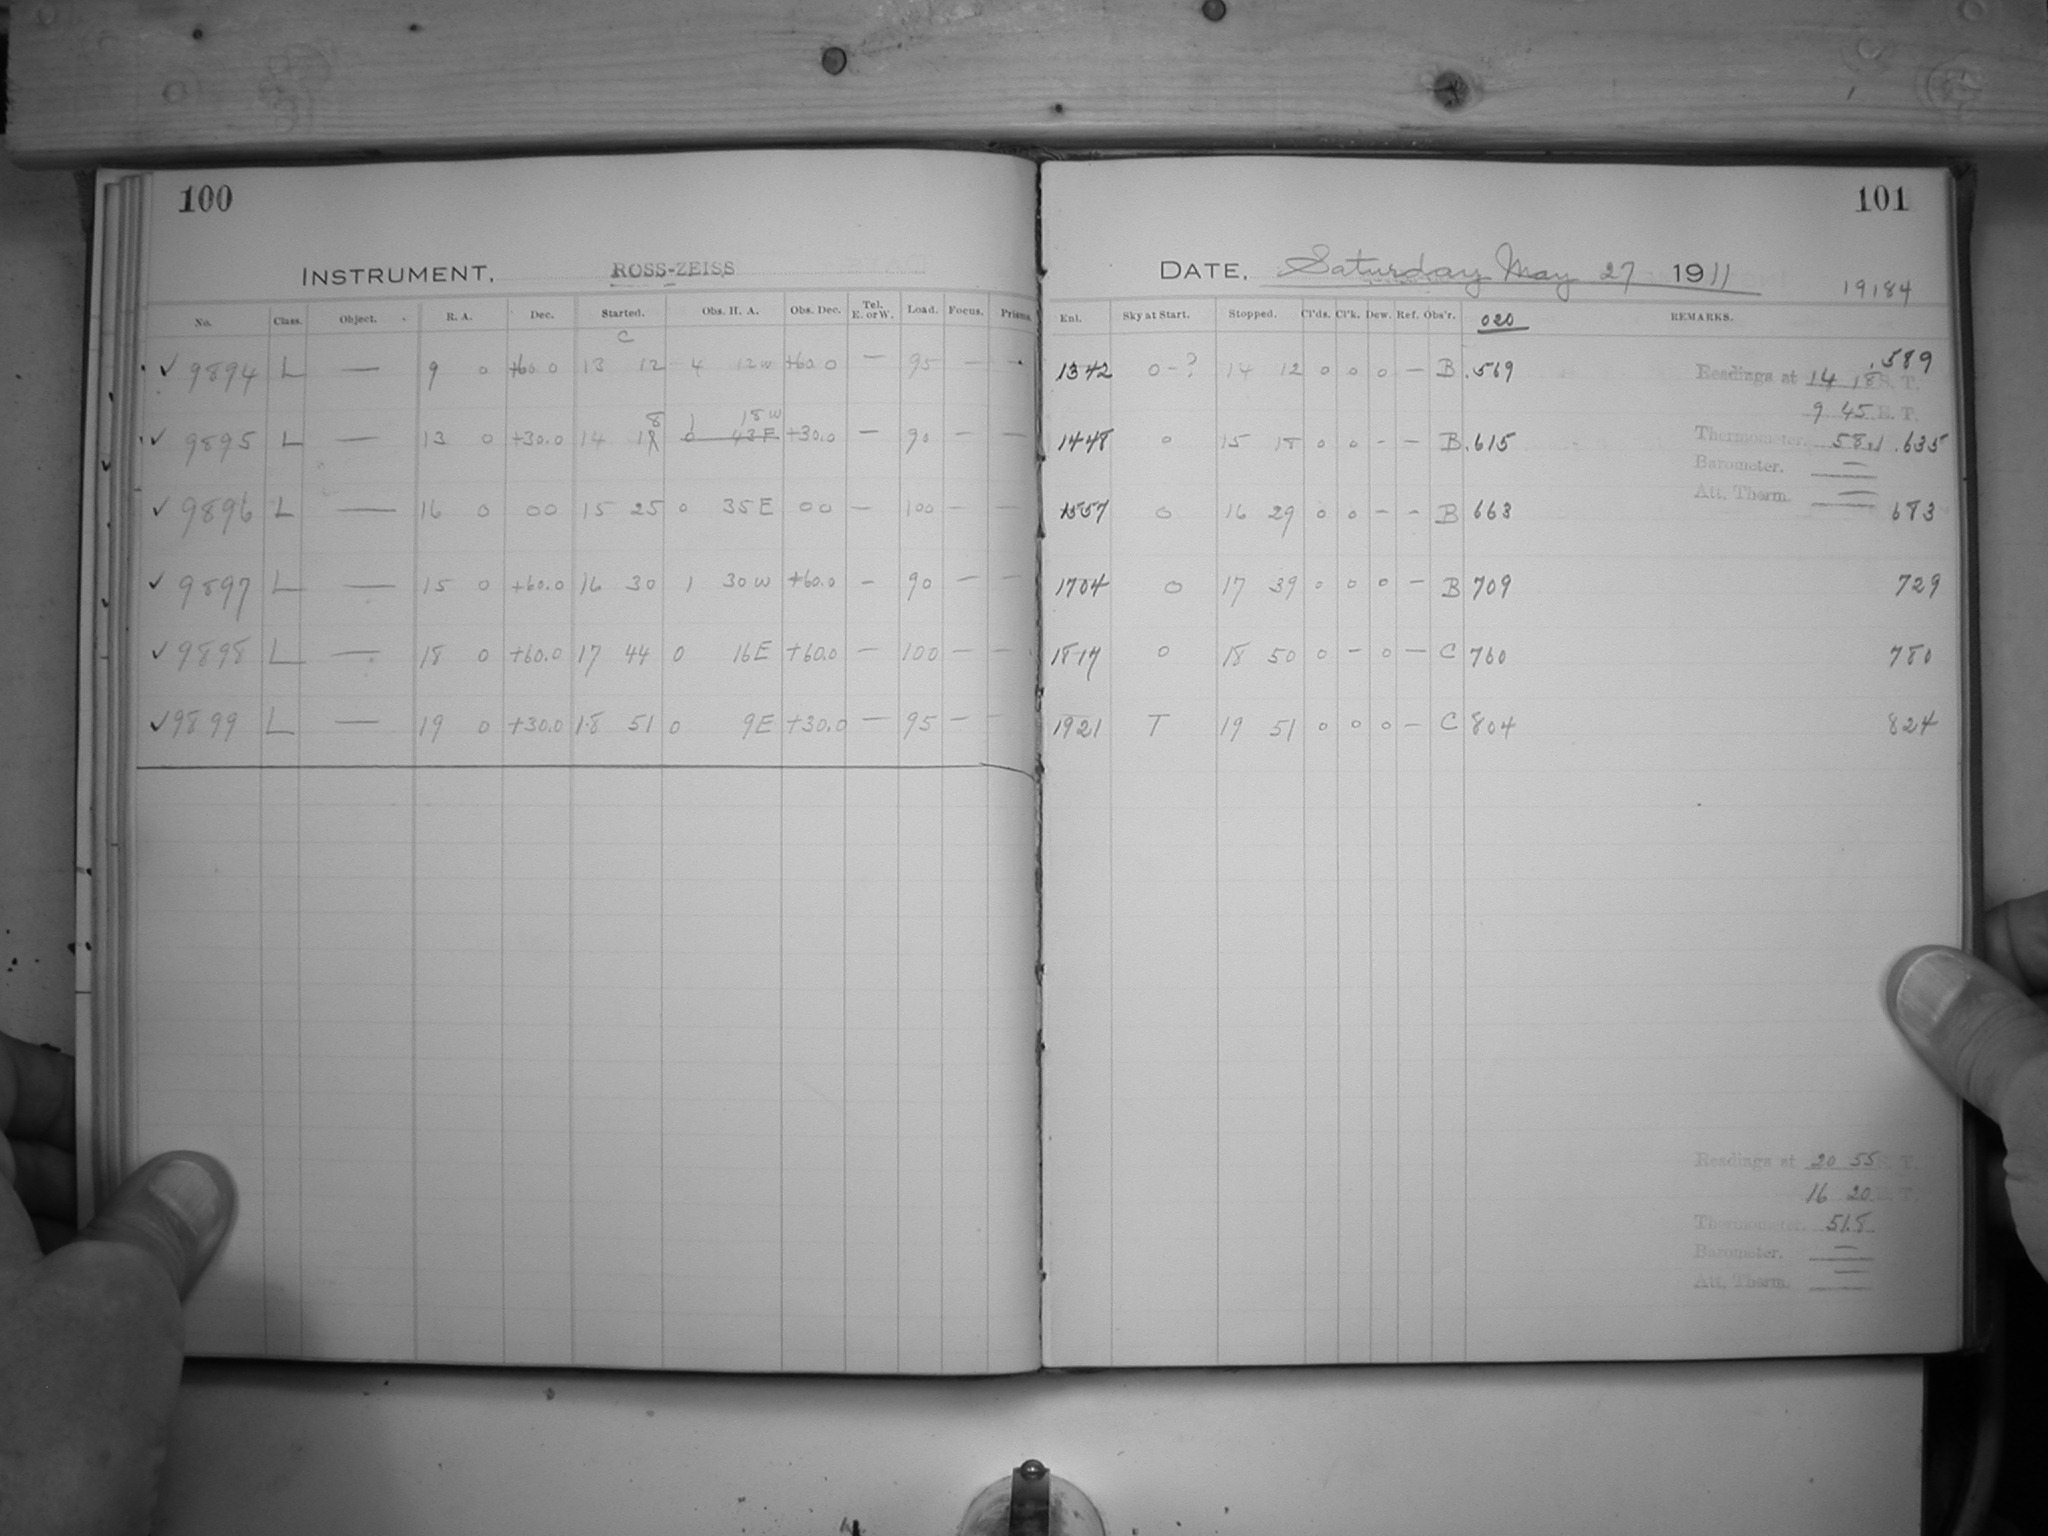 100
INSTRUMENT. ROSS-ZEISS
No. Class. Object. R. A. Dec. Started. Obs. H. A. Obs. Dec. Tel. E. or W. Load. Focus. Prisms.
C
✓ 9894 L — 9 0 +60.0 13 12 4 12 W +60.0 — 95 — —
8 1 18 W
✓ 9895 L — 13 0 +30.0 14 18 0 43 E +30.0 — 90 — —
✓ 9896 L — 16 0 00 15 25 0 35 E 00 — 100 — —
✓ 9897 L — 15 0 +60.0 16 30 1 30 W +60.0 — 90 — —
✓ 9898 L — 18 0 +60.0 17 44 0 16 E +60.0 — 100 — —
✓ 9899 L — 19 0 +30.0 18 51 0 9 E +30.0 — 95 — —
101
DATE. Saturday May 27 1911
19184
Enl. Sky at Start. Stopped. Cl'ds. Cl'k. Dew. Ref. Obs'r. 020 REMARKS.
1342 0-? 14 12 0 0 0 — B .569 .589
Readings at 14 18 S. T.
9 45 E. T.
1448 0 15 18 0 0 - — B .615 Thermometer. 58.1 .635
Barometer. —
Att. Therm. —
1557 0 16 29 0 0 - - B 663 683
1704 0 17 39 0 0 0 — B 709 729
1817 0 18 50 0 - 0 — C 760 780
1921 T 19 51 0 0 0 — C 804 824
Readings at 20 55 S. T.
16 20 E. T.
Thermometer. 51.8
Barometer. —
Att. Therm. —